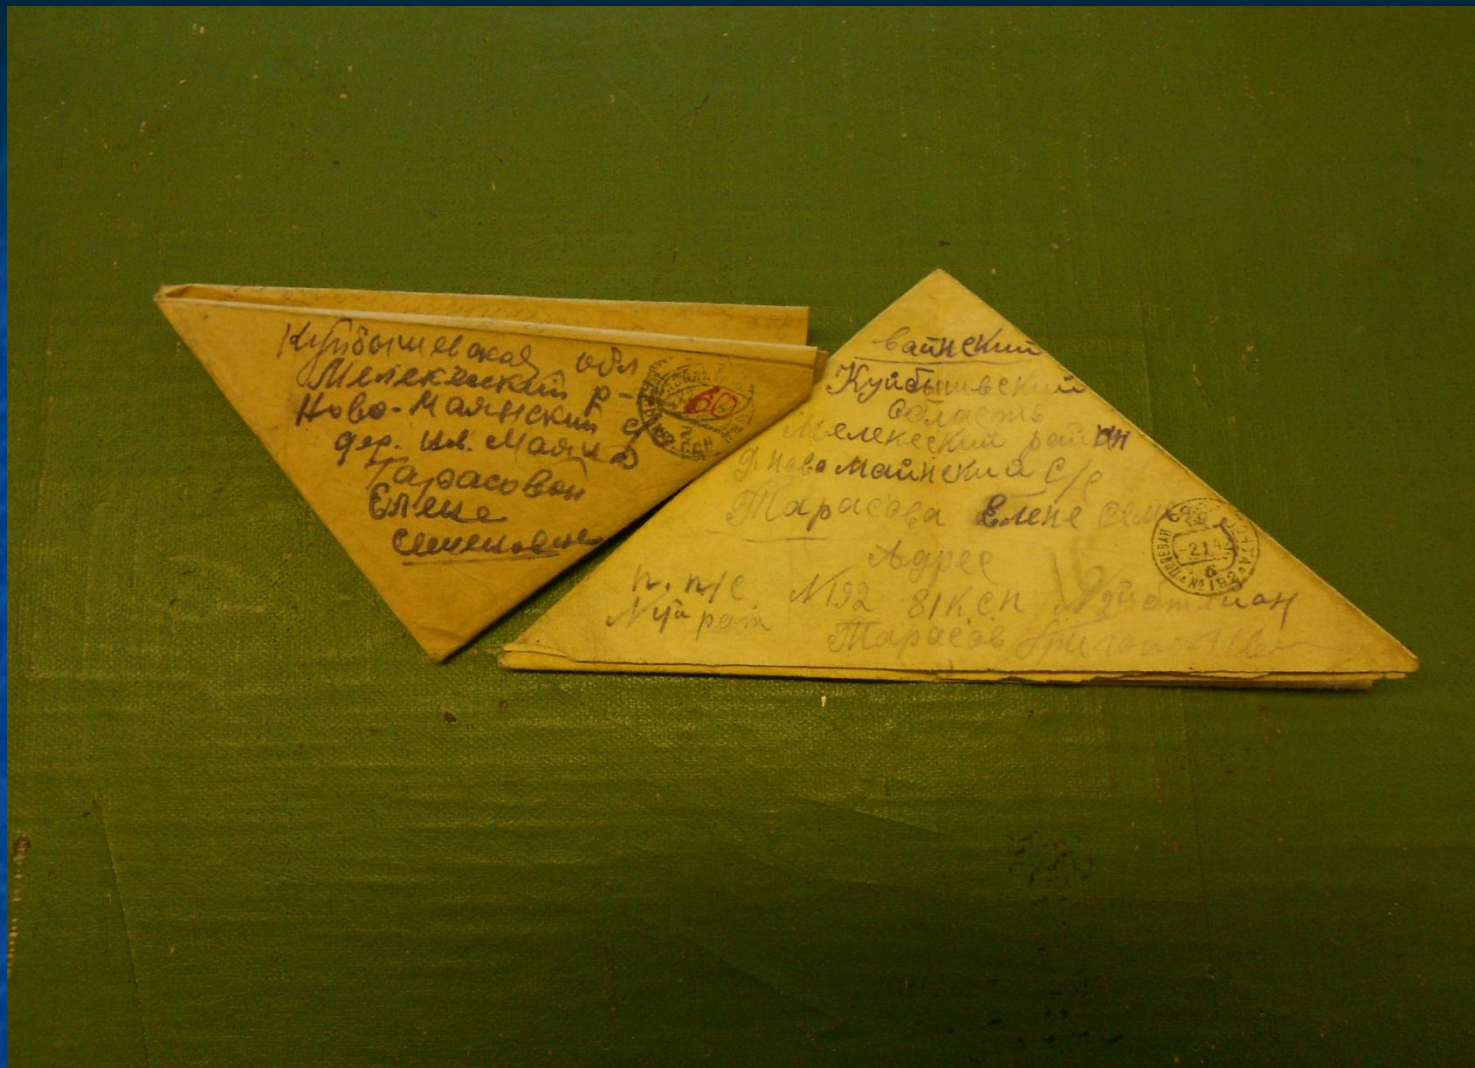 Куйбышевская обл
Мелекеский р-
Ново-Маянский с
дер. Нов. Маяна
Тарасовой
Елене
Семеновне
60
вайнский
Куйбышвский
область
Мелекеский район
д. Ново майнский с/с
Тарасова Елене Семе
Адрес
п. п/с N 192 81 К.С.П
Тарасов
ПОЛЕВАЯ ПОЧТА
№ 192